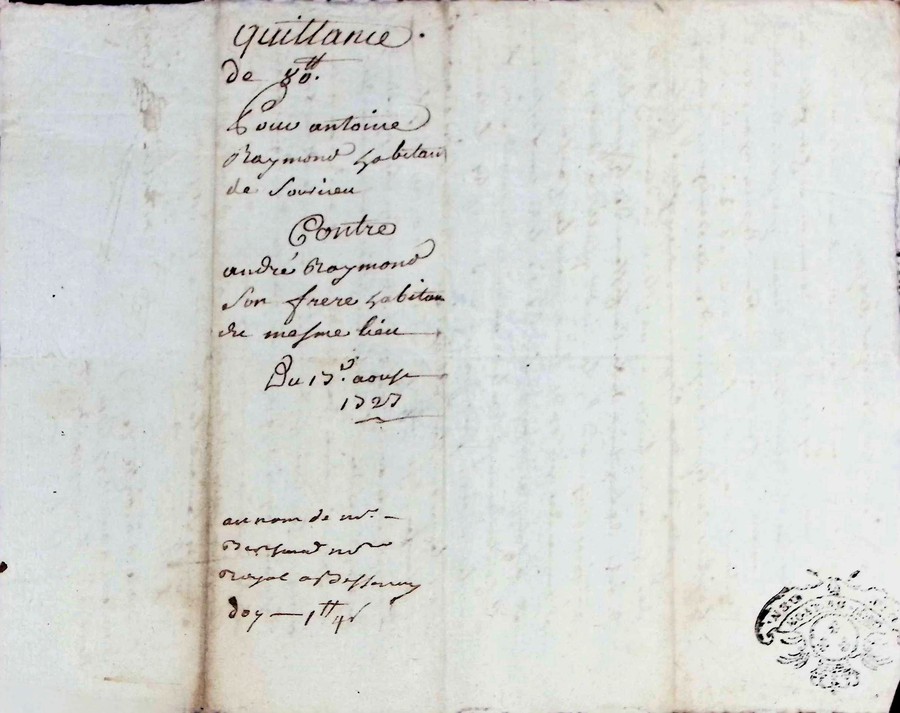 quittance.
de 80tt.
Pour antoine
Raymond habitan
de
Contre
andré Raymond
son frere habitan
du mesme lieu
Du 17e. aoust
1727
au nom de me.
Royal
doy — 1tt 4s